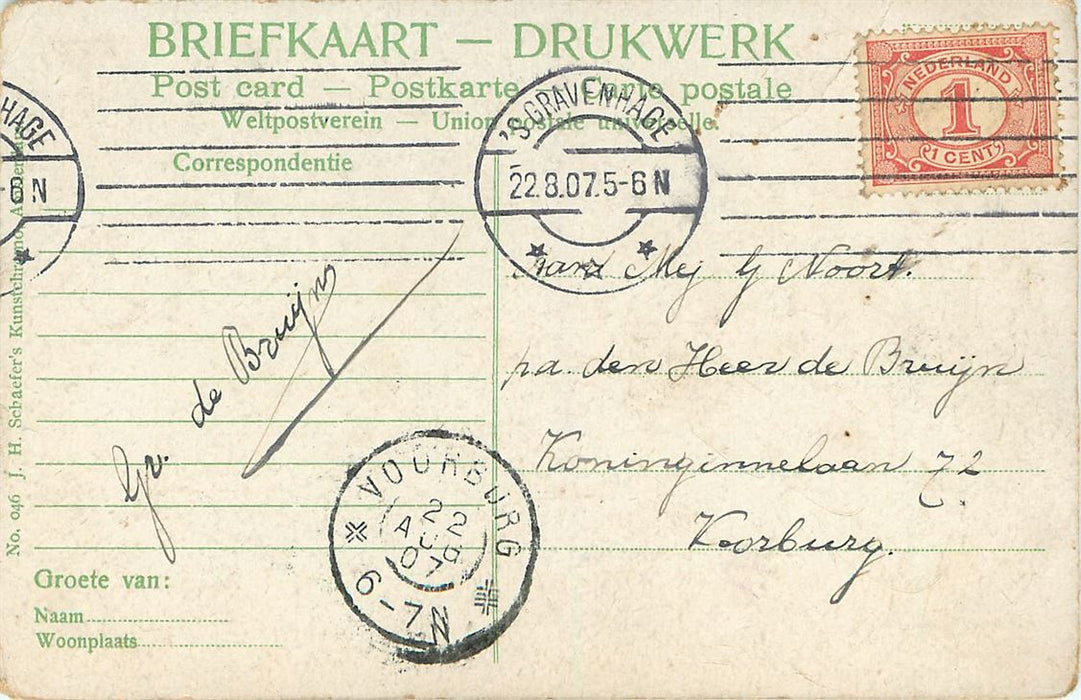 BRIEFKAART — DRUKWERK
Post card — Postkarte — Carte postale
Weltpostverein — Union postale universelle.
Correspondentie
NEDERLAND
1
1 CENT
HAGE
6 N
'S GRAVENHAGE
22.8.07.5-6 N
Gr. de Bruijn
Aan Mej G Noort.
pa. den Heer de Bruijn
Koninginnelaan 72
Voorburg.
VOORBURG
22
AUG
07
6-7N
Groete van:
Naam
Woonplaats
No. 046 J. H. Schaefer's Kunstchromo, Amsterdam